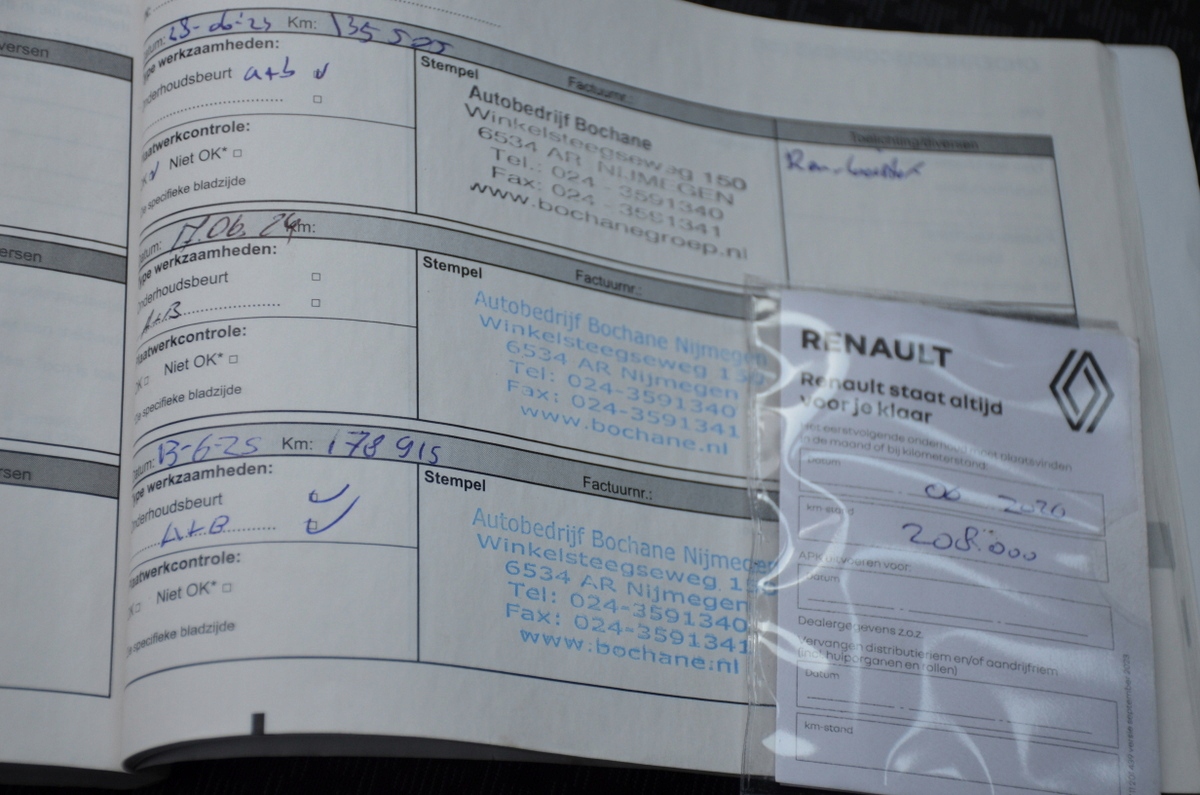 ersen
ersen
rsen
28-06-23 Km: 135 505
ype werkzaamheden:
nderhoudsbeurt a+b
aatwerkcontrole:
Niet OK*
ie specifieke bladzijde
Stempel
Factuurnr.:
Autobedrijf Bochane
Winkelsteegseweg 150
6534 AR NIJMEGEN
Tel.: 024 - 3591340
Fax: 024 - 3591341
www.bochanegroep.nl
Toelichting/diversen
17.06.24 Km:
ype werkzaamheden:
nderhoudsbeurt
A+B
aatwerkcontrole:
Niet OK*
ie specifieke bladzijde
Stempel
Factuurnr.:
Autobedrijf Bochane Nijmegen
Winkelsteegseweg 150
6534 AR Nijmegen
Tel: 024-3591340
Fax: 024-3591341
www.bochane.nl
13-6-25 Km: 178 915
ype werkzaamheden:
nderhoudsbeurt
A+B
aatwerkcontrole:
Niet OK*
ie specifieke bladzijde
Stempel
Factuurnr.:
Autobedrijf Bochane Nijmegen
Winkelsteegseweg 1
6534 AR Nijmegen
Tel: 024-3591340
Fax: 024-3591341
www.bochane.nl
RENAULT
Renault staat altijd
voor je klaar
Het eerstvolgende onderhoud moet plaatsvinden
in de maand of bij kilometerstand:
Datum
06
km-stand
208.000
APK uitvoeren voor:
Datum
Dealergegevens z.o.z.
Vervangen distributieriem en/of aandrijfriem
(incl hulporganen en rollen)
Datum
km-stand
versie september 2023